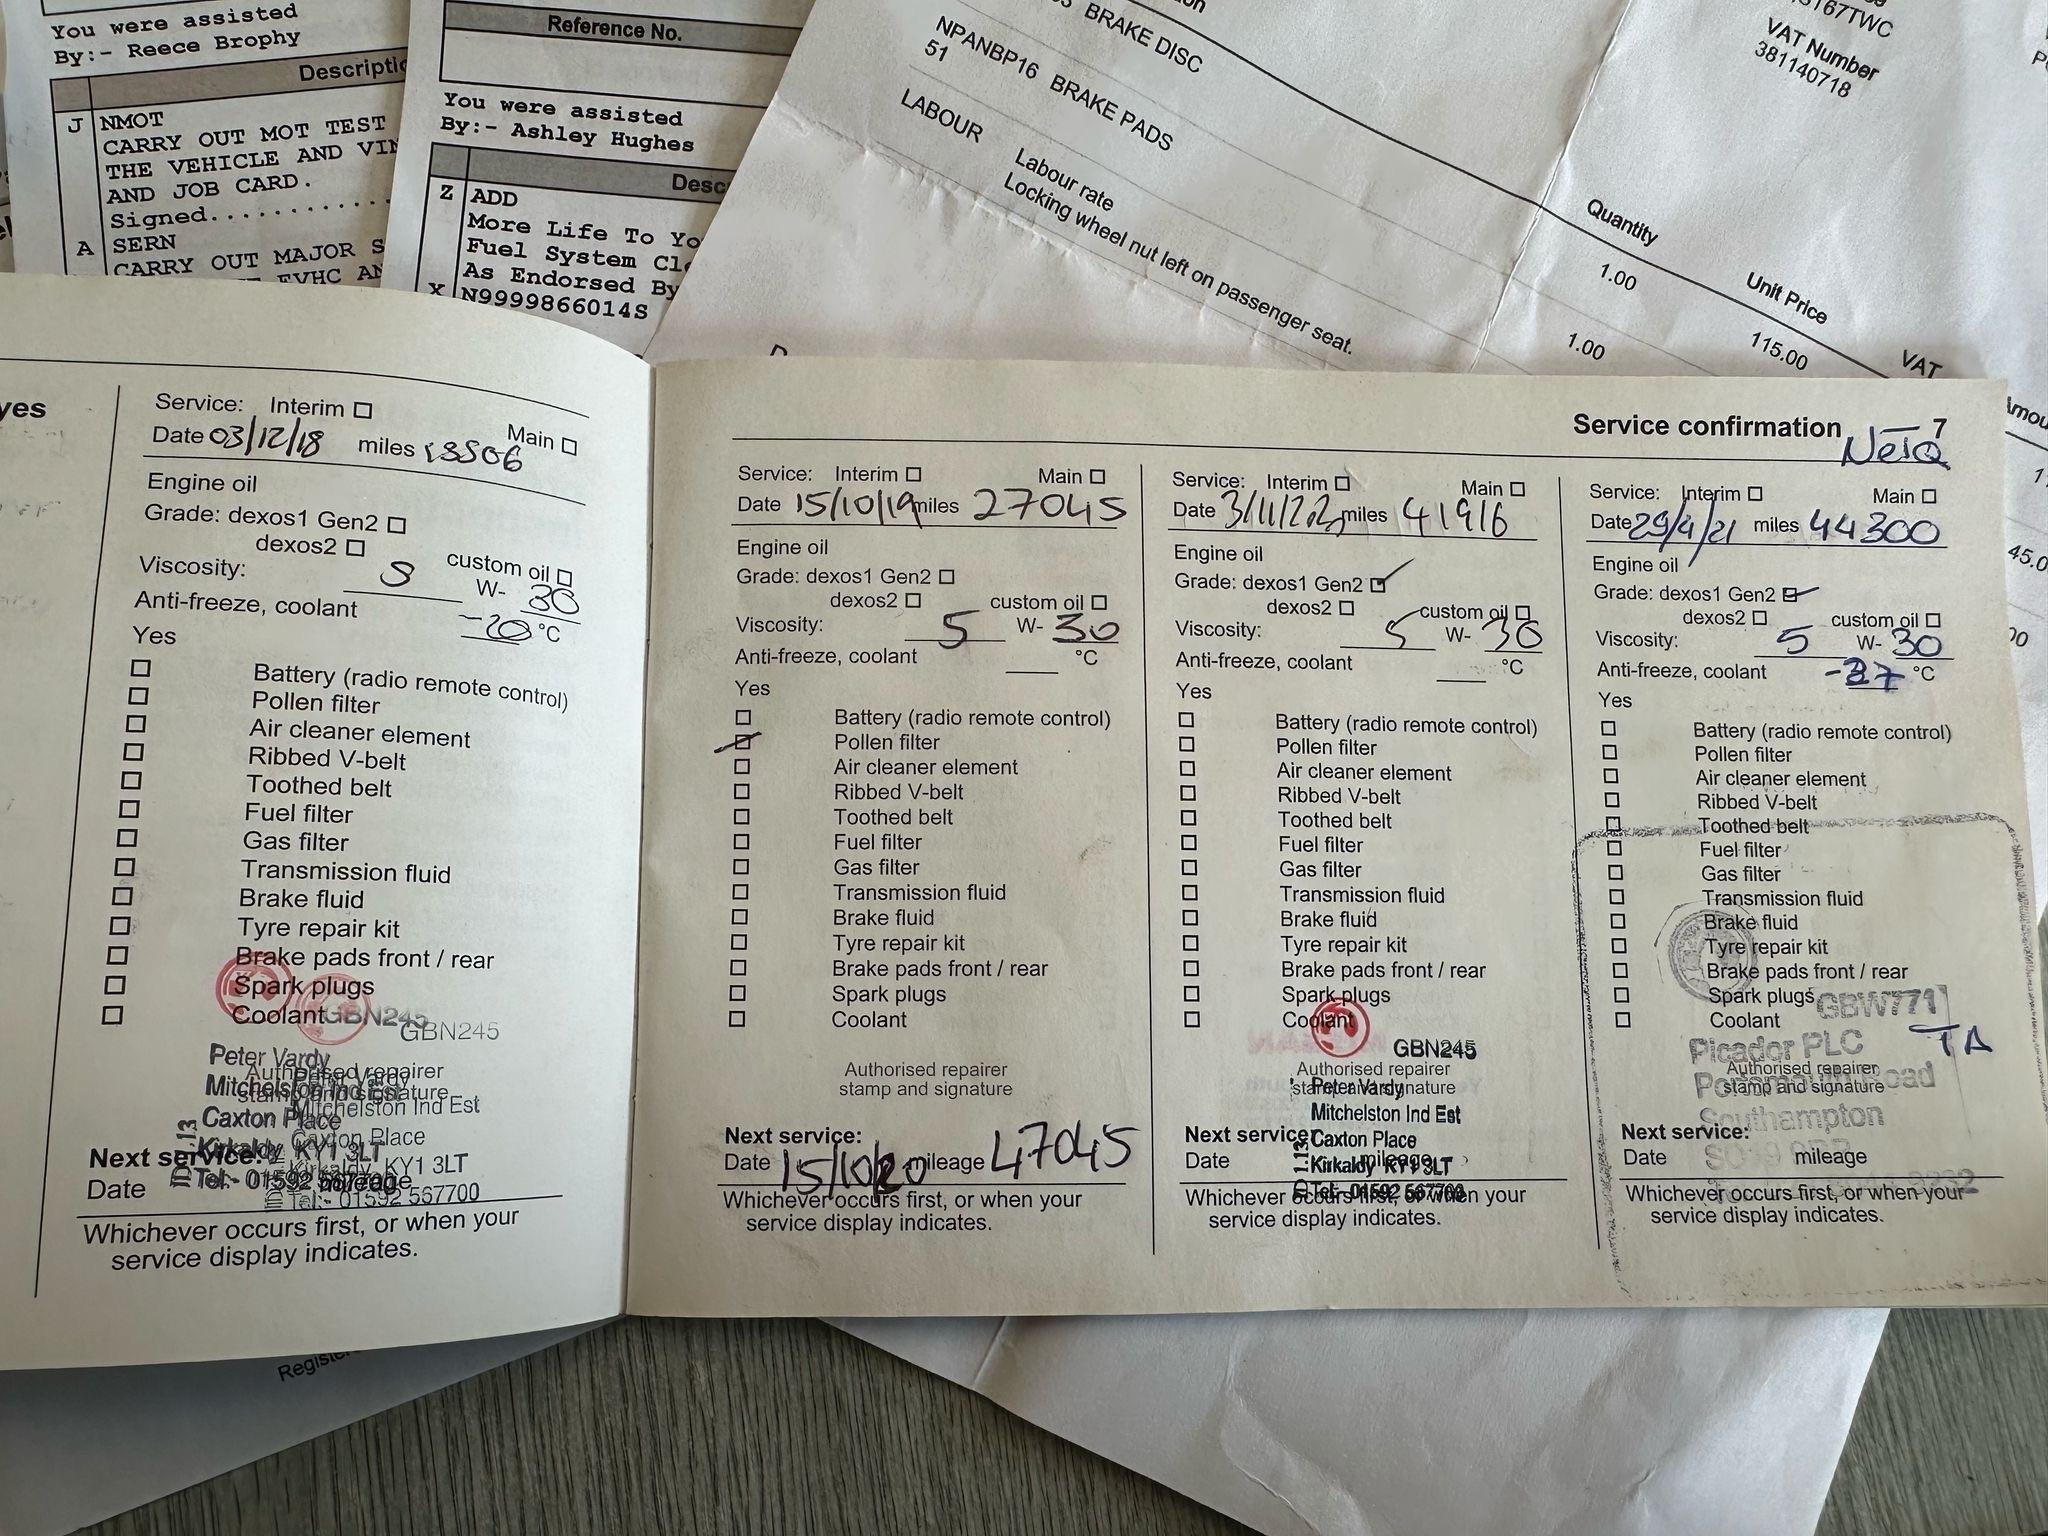 You were assisted
By:- Reece Brophy
J NMOT
CARRY OUT MOT TEST
THE VEHICLE AND VIN
AND JOB CARD.
Signed..............
A SERN
CARRY OUT MAJOR S
EVHC AN
Reference No.
You were assisted
By:- Ashley Hughes
Z ADD
More Life To Yo
Fuel System Cl
As Endorsed By
X N9999866014S
BRAKE DISC
NPANBP16 BRAKE PADS
51
LABOUR Labour rate
Locking wheel nut left on passenger seat.
VAT Number
381140718
Quantity
1.00
1.00
Unit Price
115.00
VAT
yes
Service: Interim
Main
Date 03/12/18 miles 13506
Engine oil
Grade: dexos1 Gen2
dexos2
custom oil
Viscosity: 5 W- 30
Anti-freeze, coolant -20 °C
Yes
Battery (radio remote control)
Pollen filter
Air cleaner element
Ribbed V-belt
Toothed belt
Fuel filter
Gas filter
Transmission fluid
Brake fluid
Tyre repair kit
Brake pads front / rear
Spark plugs
Coolant
GBN245
GBN245
Peter Vardy
Authorised repairer
stamp and signature
Mitchelston Ind Est
Caxton Place
Kirkaldy KY1 3LT
Tel:- 01592 567700
Next service:
Date mileage
Whichever occurs first, or when your
service display indicates.
Service confirmation 7
Service: Interim Main
Date 15/10/19 miles 27045
Engine oil
Grade: dexos1 Gen2
dexos2 custom oil
Viscosity: 5 W- 30
Anti-freeze, coolant °C
Yes
Battery (radio remote control)
Pollen filter
Air cleaner element
Ribbed V-belt
Toothed belt
Fuel filter
Gas filter
Transmission fluid
Brake fluid
Tyre repair kit
Brake pads front / rear
Spark plugs
Coolant
Authorised repairer
stamp and signature
Next service:
Date 15/10/20 mileage 47045
Whichever occurs first, or when your
service display indicates.
Service: Interim Main
Date 3/11/20 miles 41916
Engine oil
Grade: dexos1 Gen2
dexos2 custom oil
Viscosity: 5 W- 30
Anti-freeze, coolant °C
Yes
Battery (radio remote control)
Pollen filter
Air cleaner element
Ribbed V-belt
Toothed belt
Fuel filter
Gas filter
Transmission fluid
Brake fluid
Tyre repair kit
Brake pads front / rear
Spark plugs
Coolant
GBN245
Authorised repairer
stamp and signature
Peter Vardy
Mitchelston Ind Est
Caxton Place
Kirkaldy KY1 3LT
Tel:- 01592 567700
Next service:
Date mileage
Whichever occurs first, or when your
service display indicates.
Service: Interim Main
Date 29/4/21 miles 44300
Engine oil
Grade: dexos1 Gen2
dexos2 custom oil
Viscosity: 5 W- 30
Anti-freeze, coolant -37 °C
Yes
Battery (radio remote control)
Pollen filter
Air cleaner element
Ribbed V-belt
Toothed belt
Fuel filter
Gas filter
Transmission fluid
Brake fluid
Tyre repair kit
Brake pads front / rear
Spark plugs
Coolant
GBW771
Picador PLC
Authorised repairer
stamp and signature
Portsmouth Road
Southampton
Next service:
Date mileage
Whichever occurs first, or when your
service display indicates.